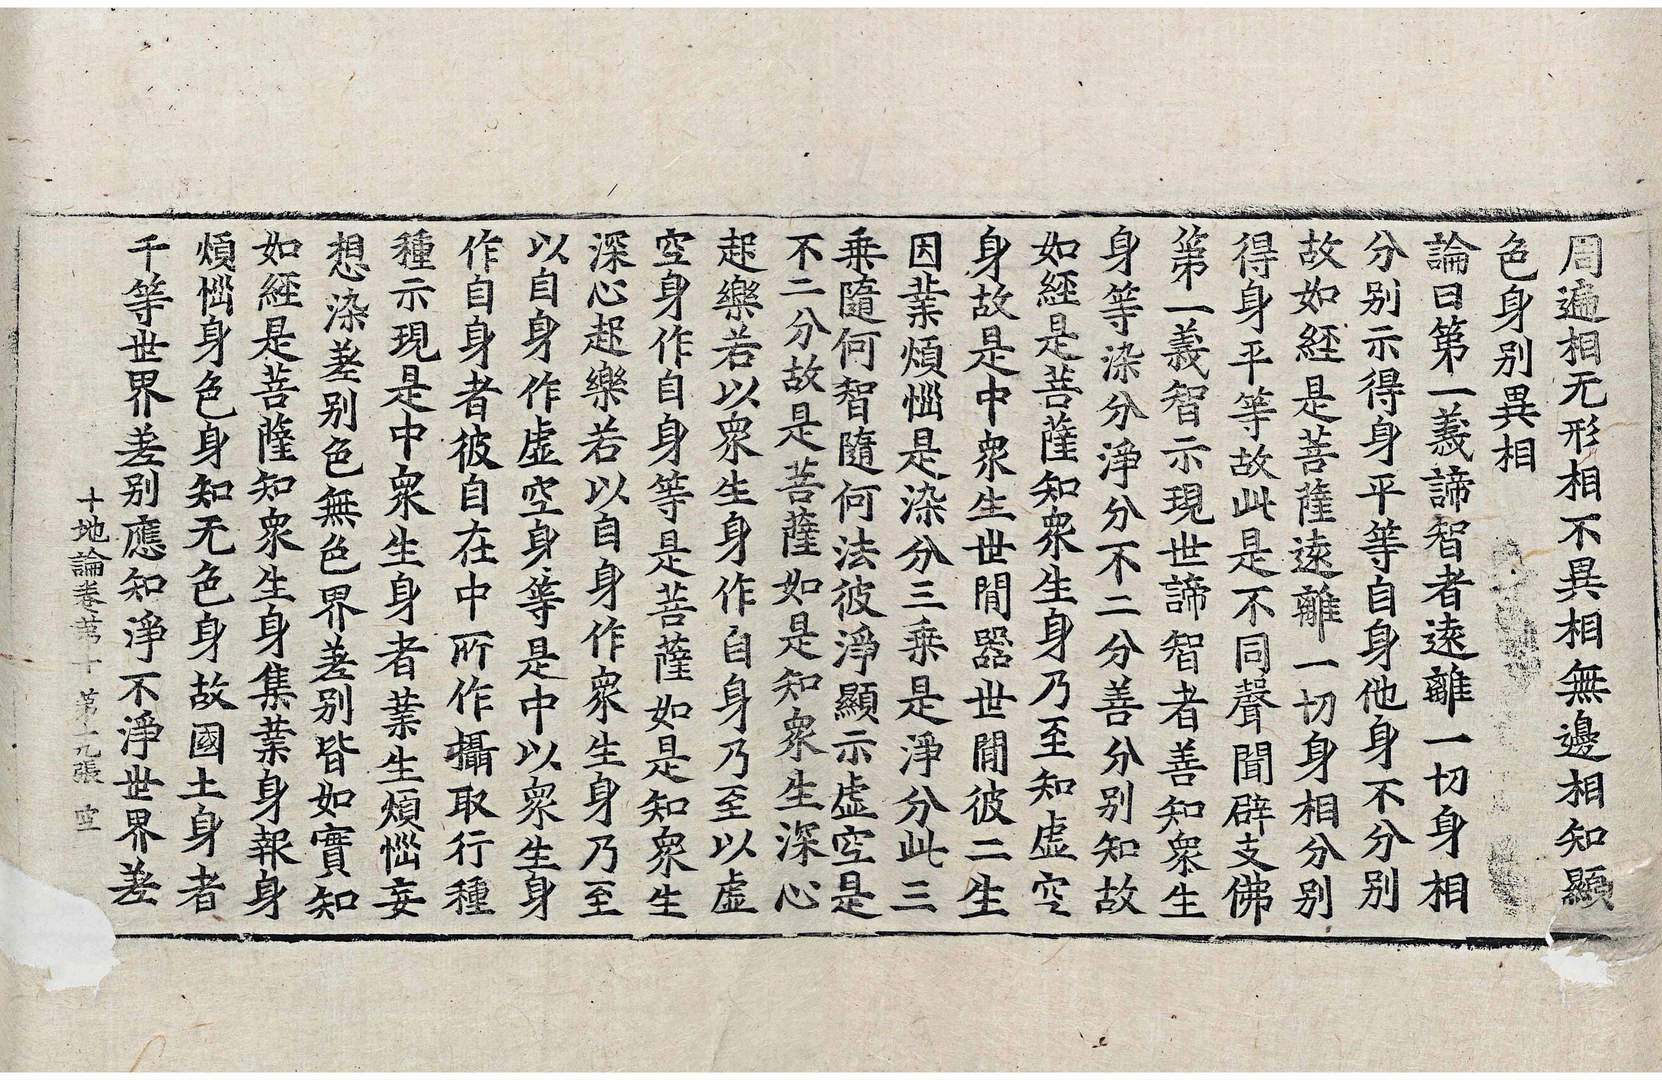 周遍相无形相不異相無邊相知顯
色身別異相
論曰第一義諦智者遠離一切身相
分別示得身平等自身他身不分別
故如經是菩薩遠離一切身相分別
得身平等故此是不同聲聞辟支佛
第一義智示現世諦智者善知衆生
身等染分淨分不二分善分別知故
如經是菩薩知衆生身乃至知虛空
身故是中衆生世間器世間彼二生
因業煩惱是染分三乘是淨分此三
乘隨何智隨何法彼淨顯示虛空是
不二分故是菩薩如是知衆生深心
起樂若以衆生身作自身乃至以虛
空身作自身等是菩薩如是知衆生
深心起樂若以自身作衆生身乃至
以自身作虛空身等是中以衆生身
作自身者彼自在中所作攝取行種
種示現是中衆生身者業生煩惱妄
想染差別色無色界差別皆如實知
如經是菩薩知衆生身集業身報身
煩惱身色身知无色身故國土身者
千等世界差別應知淨不淨世界差
十地論卷第十 第十九張 空